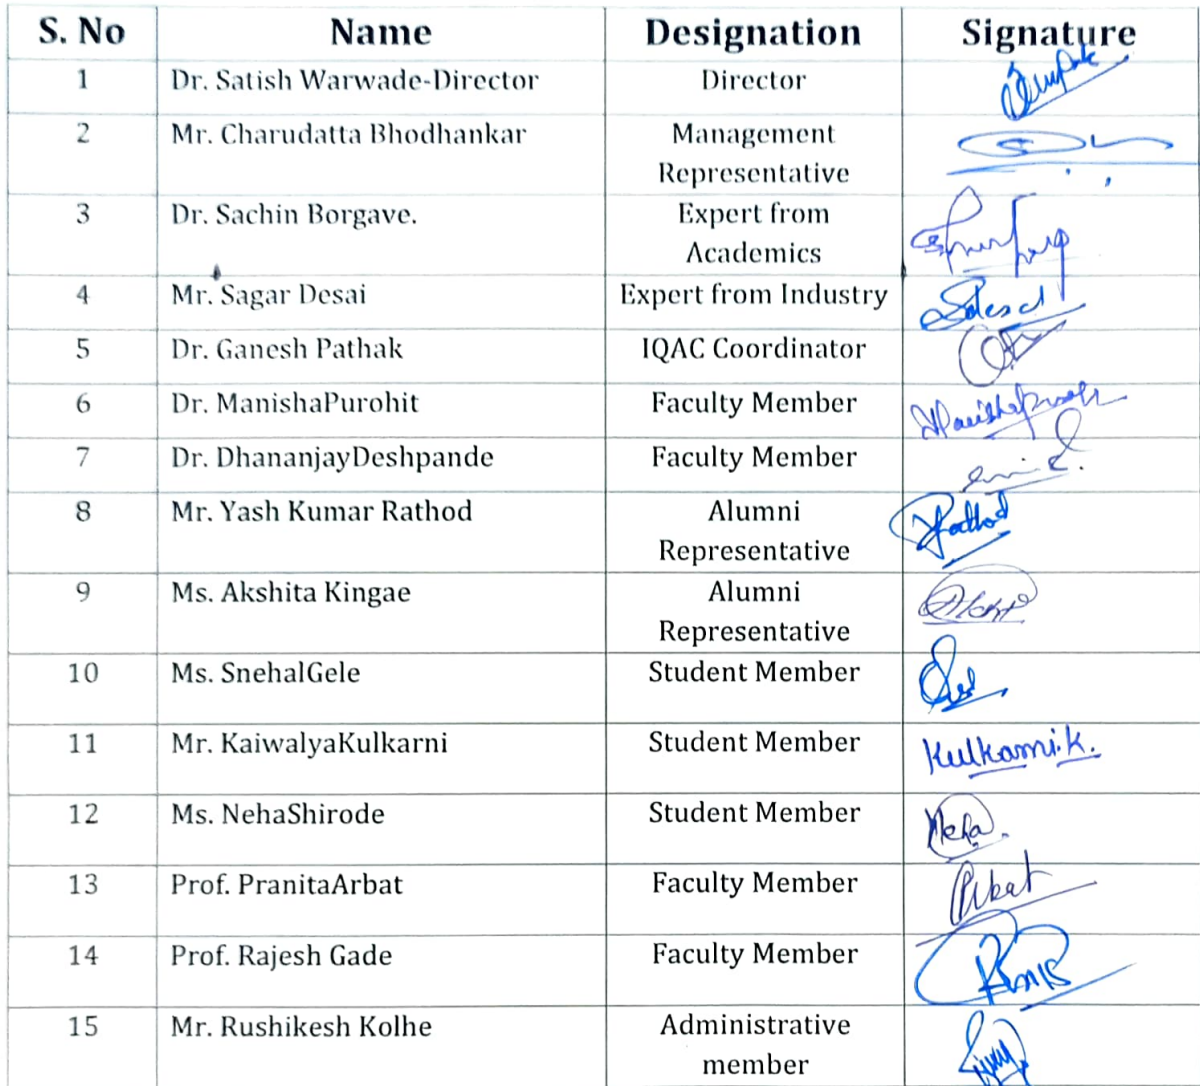 S. No Name Designation Signature
1 Dr. Satish Warwade-Director Director
2 Mr. Charudatta Bhodhankar Management
Representative
3 Dr. Sachin Borgave. Expert from
Academics
4 Mr. Sagar Desai Expert from Industry
5 Dr. Ganesh Pathak IQAC Coordinator
6 Dr. ManishaPurohit Faculty Member
7 Dr. DhananjayDeshpande Faculty Member
8 Mr. Yash Kumar Rathod Alumni
Representative
9 Ms. Akshita Kingae Alumni
Representative
10 Ms. SnehalGele Student Member
11 Mr. KaiwalyaKulkarni Student Member Kulkarni.K.
12 Ms. NehaShirode Student Member Neha
13 Prof. PranitaArbat Faculty Member
14 Prof. Rajesh Gade Faculty Member
15 Mr. Rushikesh Kolhe Administrative
member